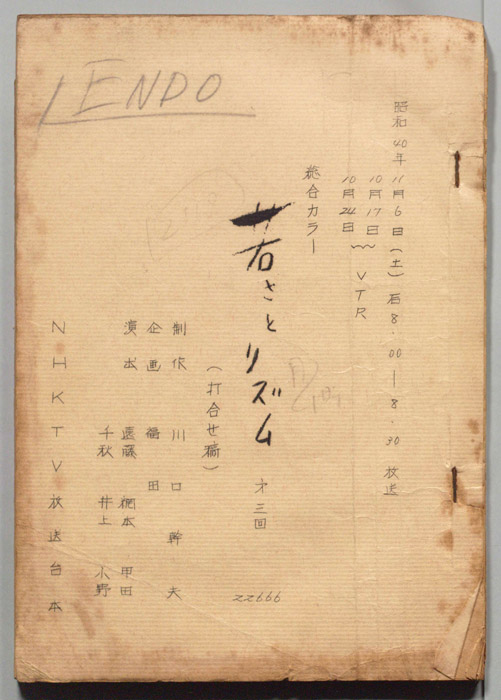 ENDO
昭和40年11月6日(土)后8.00—8.30放送
10月17日〜
10月24日 VTR
総合カラー
若さとリズム 第三回
22666
(打合せ稿)
制作 川口幹夫
企画 福田
演出 遠藤 橋本 甲田
千秋 井上 小野
NHKTV放送台本